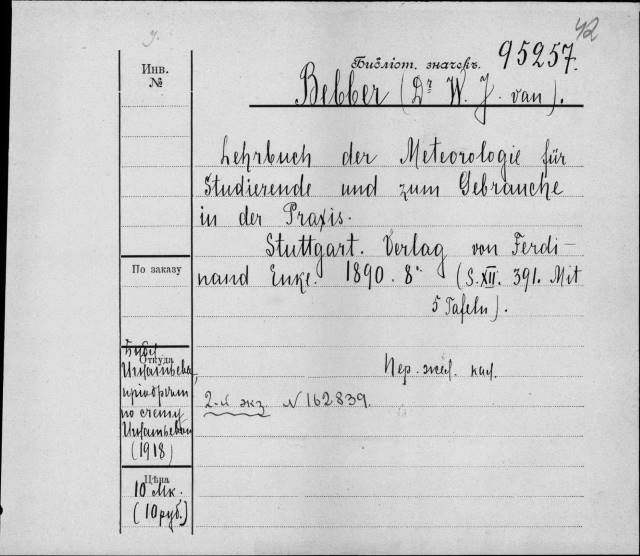 42
Библіот. значекъ. 95257.
Инв.
№
Bebber (Dr W. J. van).
Lehrbuch der Meteorologie für
Studierende und zum Gebrauche
in der Praxis.
Stuttgart. Verlag von Ferdi-
nand Enke. 1890. 8°. (S. XII. 391. Mit
5 Tafeln).
По заказу
Откуда
Библ.
Игнатьева,
приобрѣт.
по счету
Игнатьевой
(1918)
Пер. жел. кал.
2-й экз. N 162839.
Цѣна
10 Мк.
(10 руб.)